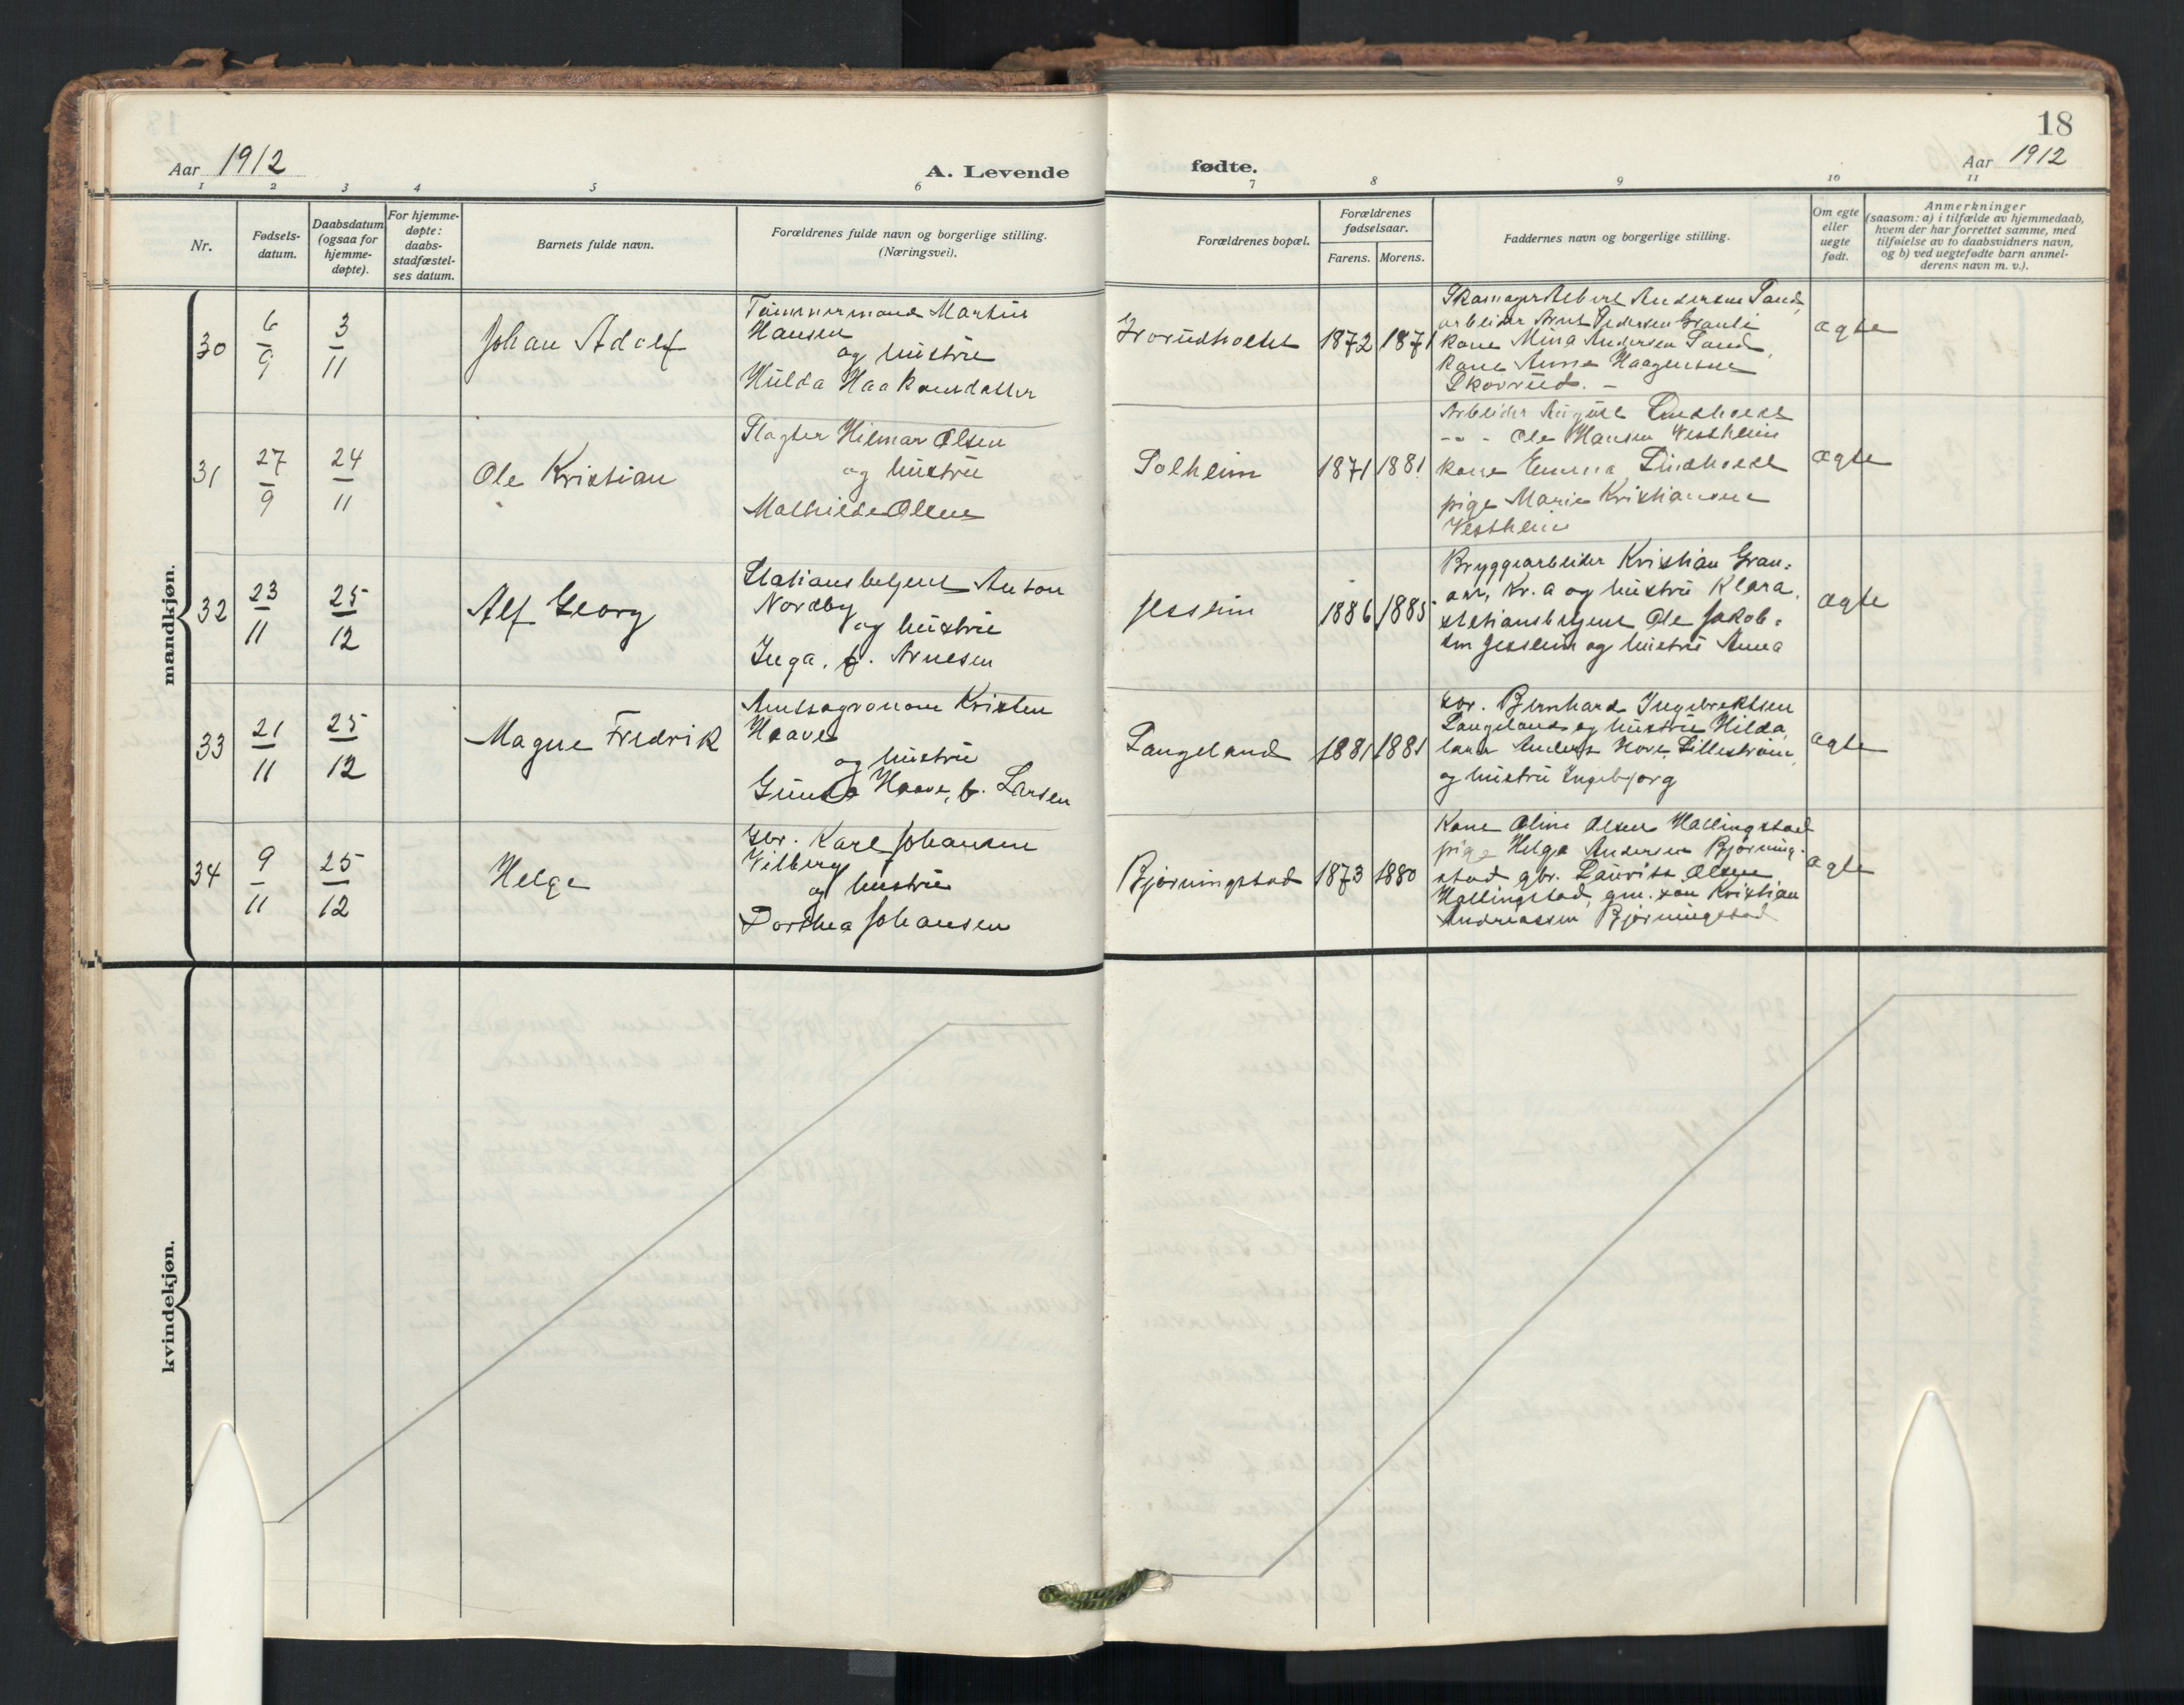 18
Aar 1912
A. Levende
fødte.
Aar 1912
1 2 3 4 5 6 7 8 9 10 11
Nr.
Fødsels-
datum.
Daabsdatum
(ogsaa for
hjemme-
døpte).
For hjemme-
døpte:
daabs-
stadfæstel-
ses datum.
Barnets fulde navn.
Forældrenes fulde navn og borgerlige stilling.
(Næringsvei).
Forældrenes bopæl.
Forældrenes
fødselsaar.
Farens. Morens.
Faddernes navn og borgerlige stilling.
Om egte
eller
uegte
født.
Anmerkninger
(saasom: a) i tilfælde av hjemmedaab,
hvem der har forrettet samme, med
tilføielse av to daabsvidners navn,
og b) ved uegtefødte barn anmel-
derens navn m. v.).
mandkjøn.
30
6/9
3/11
Johan Adolf
Tømmermand Martin
Hansen
og hustru
Hulda Haakonsdatter
1872 1871
Skomager Albert Andersen Sand,
arbeider Arnt Pedersen Granli
kone Mina Andersen Sand,
kone Anna Haagensen
Skovrud. -
ægte
31
27/9
24/11
Ole Kristian
Slagter Hilmar Olsen
og hustru
Mathilde Olsen
Solheim
1871 1881
Arbeider August Lindholdt
-"- Ole Hansen Vestheim
kone Emma Lindholdt
pige Marie Kristiansen
Vestheim
ægte
32
23/11
25/12
Alf Georg
Stationsbetjent Anton
Nordby
og hustru
Inga, f. Arnesen
Jessheim
1886 1885
Bryggearbeider Kristian Gran-
Kr.a og hustru Klara,
stationsbetjent Ole Jakob-
sen Jessheim og hustru Anna
ægte
33
21/11
25/12
Magne Fredrik
Amtsagronom Kristen
Haave
og hustru
Gunda Haave, f. Larsen
Langeland
1881 1881
Gbr. Bernhard Ingebrektsen
Langeland og hustru Hilda,
Anders Hove, Lillestrøm,
og hustru Ingebjørg
ægte
34
9/11
25/12
Helge
Gbr. Karl Johansen
Vilberg
og hustru
Dorthea Johansen
Bjørningstad
1873 1880
Kone Oline Olsen Hallingstad
pige Helga Andersen Bjørning-
stad gbr. Laurits Olsen
Hallingstad, gm. søn Kristian
Andreassen Bjørningstad
ægte
kvindekjøn.